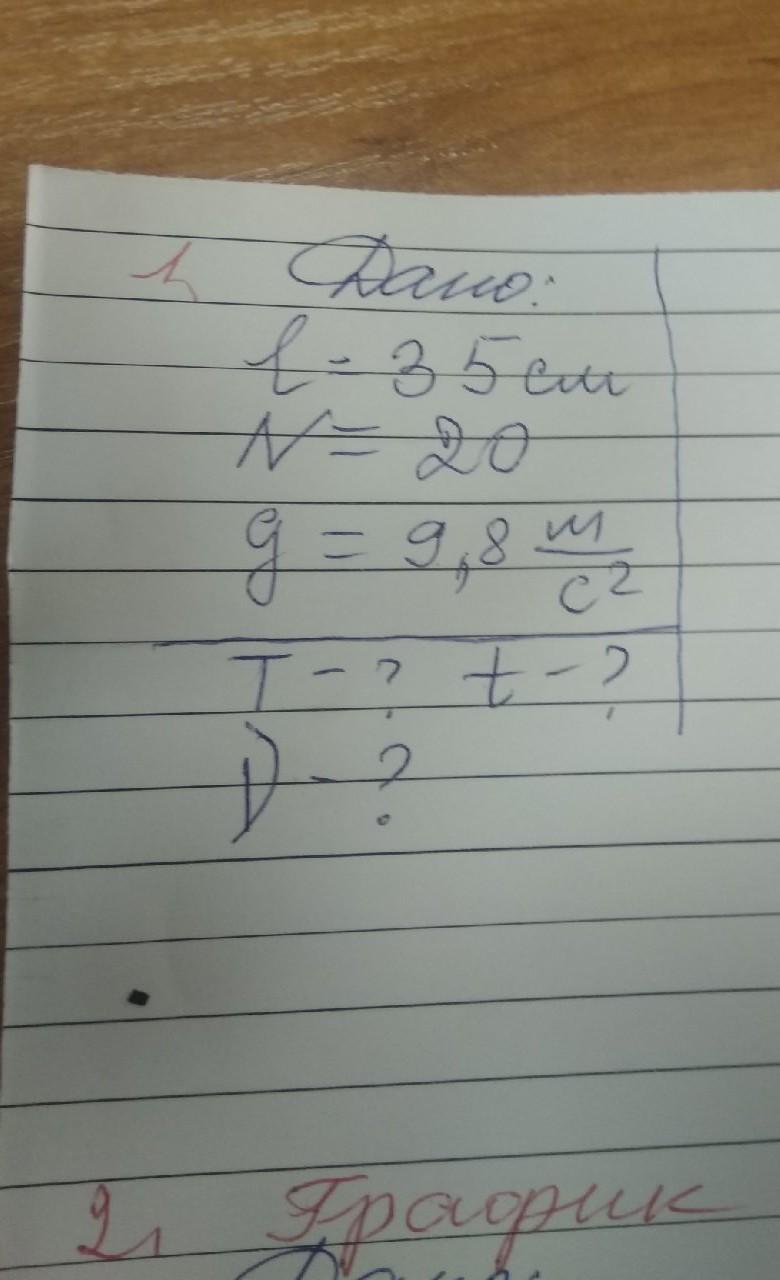 1, Дано:
l = 35 см
N = 20
g = 9,8 м/с²
T - ? t - ?
ν - ?
2, График
Дано: